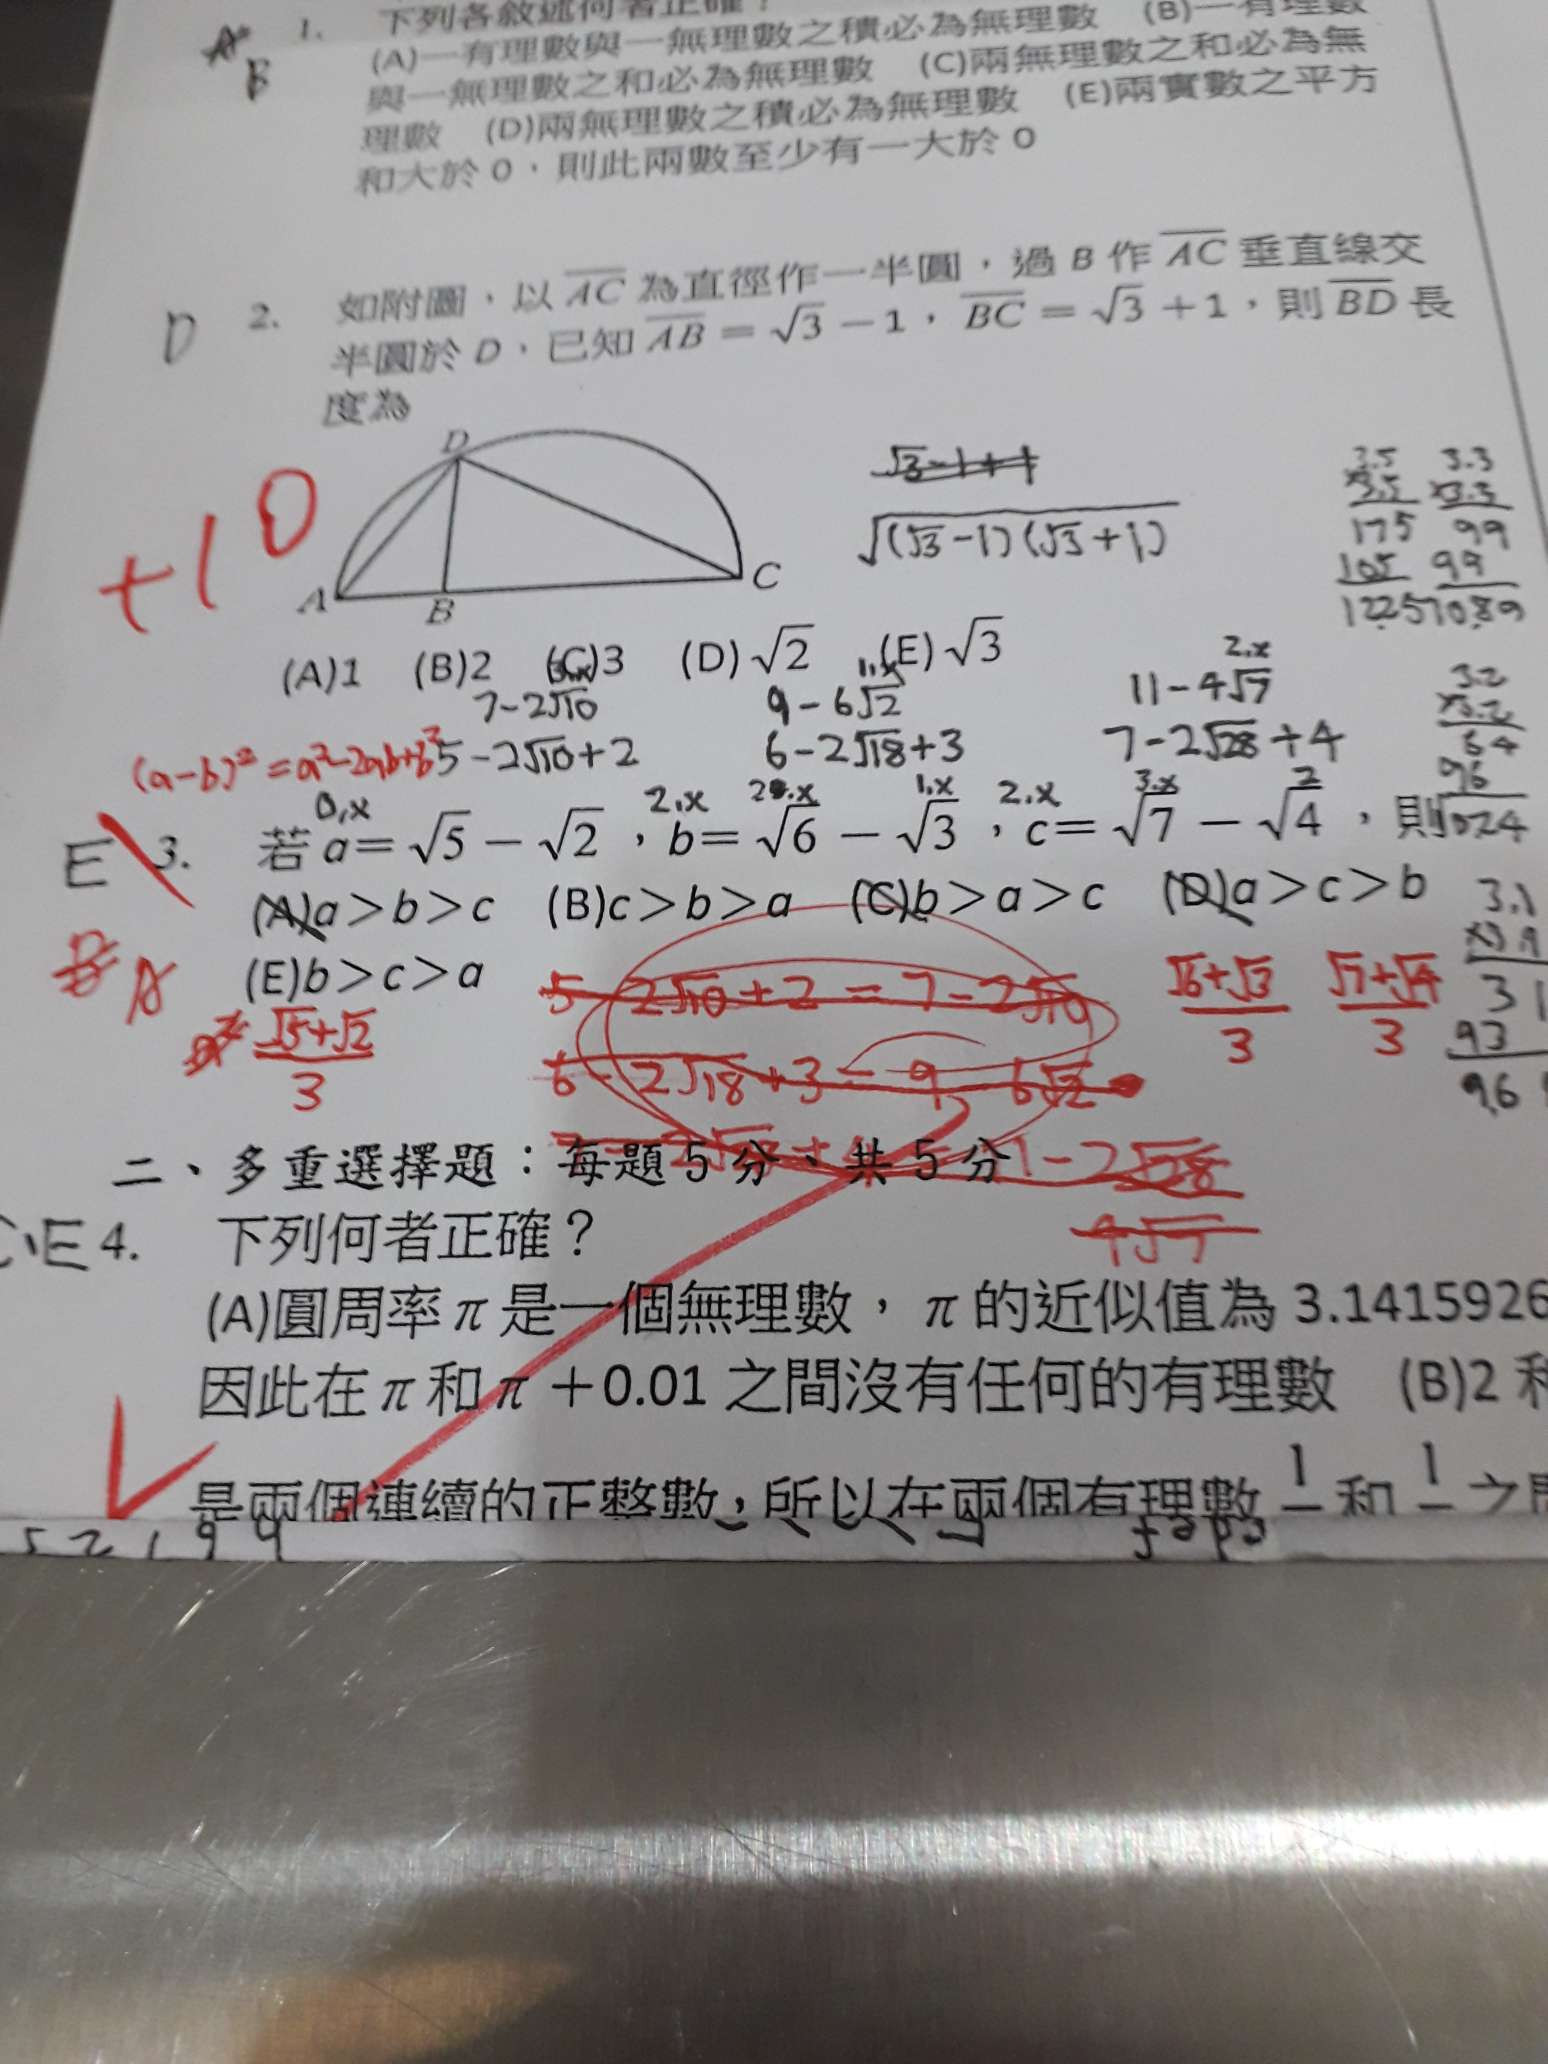 1. 下列各敘述何者正確？
B
(A)一有理數與一無理數之積必為無理數 (B)一有理數
與一無理數之和必為無理數 (C)兩無理數之和必為無
理數 (D)兩無理數之積必為無理數 (E)兩實數之平方
和大於 0，則此兩數至少有一大於 0
D 2. 如附圖，以 AC 為直徑作一半圓，過 B 作 AC 垂直線交
半圓於 D，已知 AB = √3 − 1，BC = √3 + 1，則 BD 長
度為
D
A B C
+10
√3-1+1
√(√3-1)(√3+1)
3.5 3.3
×3.5 ×3.3
175 99
105 99
1225 10.89
(A)1 (B)2 (C)3 (D)√2 (E)√3
3.2
×3.2
64
96
1024
3.x 1.x 2.x
7-2√10 9-6√2 11-4√7
(a-b)²=a²-2ab+b² 5-2√10+2 6-2√18+3 7-2√28+4
0.x 2.x 1.x 2.x 3.x 2
E 3. 若 a= √5 − √2，b= √6 − √3，c= √7 − √4，則
(A)a>b>c (B)c>b>a (C)b>a>c (D)a>c>b
(E)b>c>a
A
3.1
31
93
9.6
5-2√10+2=7-2√10
6-2√18+3=9-6√2
√5+√2
3
√6+√3
3
√7+√4
3
1-2√28
4√7
二、多重選擇題：每題 5 分、共 5 分
E 4. 下列何者正確？
(A)圓周率 π 是一個無理數，π 的近似值為 3.1415926
因此在 π 和 π +0.01 之間沒有任何的有理數 (B)2 和
是兩個連續的正整數，所以在兩個有理數 1 和 1 之